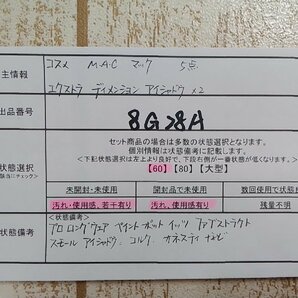 コスメ MAC マック 5点
主情報
エクストラ ディメンション アイシャドウ ×2
出品番号 8G28A
セット商品の場合は多数の状態選択となります。
個別情報は状態備考に記載します。
<下記状態選択は左上より良好で、下段右側が一番状態が低くなります>
状態選択 【60】【80】【大型】
未開封・未使用 開封品で未使用 数回使用で状態
汚れ・使用感、若干有り 汚れ、使用感有り 残量不明
<状態備考>
状態備考 プロロングウェア ペイントポット イッツ ファブストラクト
スモール アイシャドウ コルク カネスティ など